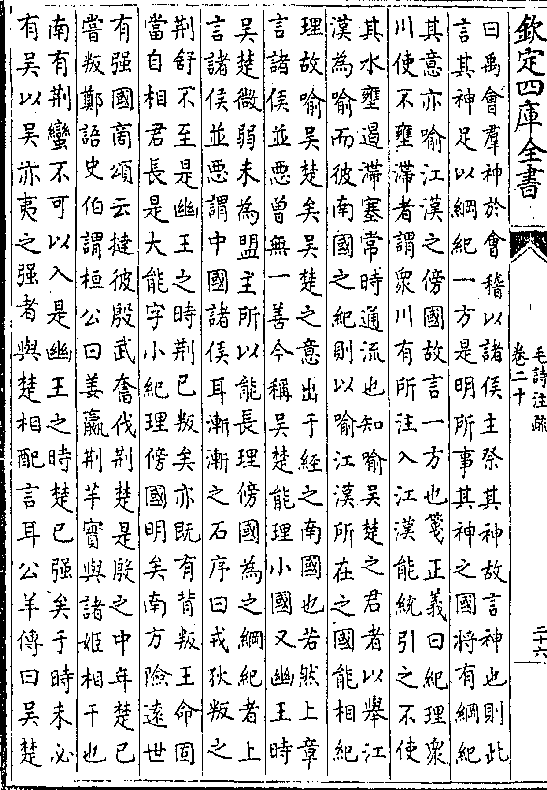 欽定四庫全書
毛詩注疏
卷二十
二十六
曰禹會羣神於會稽以諸侯主祭其神故言神也則此
言其神足以綱紀一方是明所事其神之國將有綱紀
其意亦喻江漢之傍國故言一方也箋正義曰紀理衆
川使不壅滯者謂衆川有所注入江漢能統引之不使
其水壅遏滯塞常時通流也知喻吳楚之君者以舉江
漢為喻而彼南國之紀則以喻江漢所在之國能相紀
理故喻吳楚矣吳楚之意出于經之南國也若然上章
言諸侯並惡曾無一善今稱吳楚能理小國又幽王時
吳楚微弱未為盟主所以能長理傍國為之綱紀者上
言諸侯並惡謂中國諸侯耳漸漸之石序曰戎狄叛之
荆舒不至是幽王之時荆已叛矣亦既有背叛王命固
當自相君長是大能字小紀理傍國明矣南方險遠世
有强國商頌云撻彼殷武奮伐荆楚是殷之中年楚已
嘗叛鄭語史伯謂桓公曰姜嬴荆芈實與諸姬相干也
南有荆蠻不可以入是幽王之時楚已强矣于時未必
有吳以吳亦夷之强者與楚相配言耳公羊傳曰吳楚